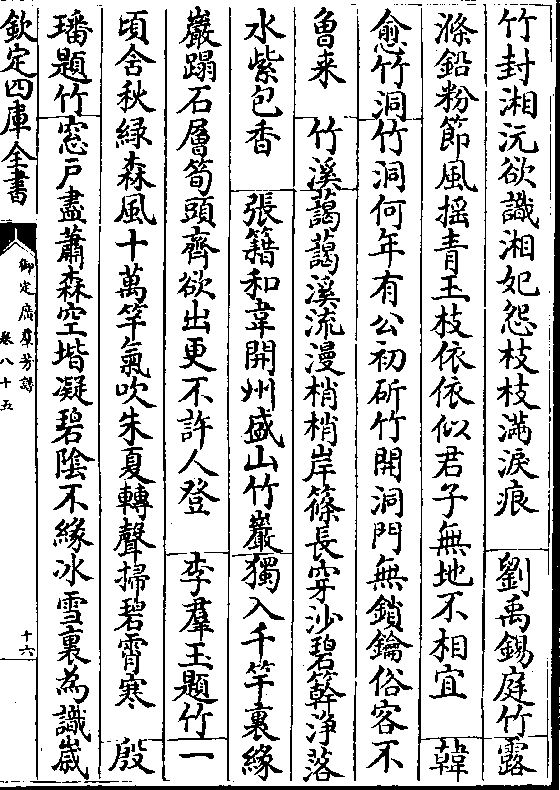 竹封湘沅欲識湘妃怨枝枝滿淚痕　劉禹錫庭竹露
滌鉛粉節風搖青玉枝依依似君子無地不相宜　韓
愈竹洞竹洞何年有公初斫竹開洞門無鎖鑰俗客不
曽来　竹溪藹藹溪流漫梢梢岸篠長穿沙碧簳浄落
水紫包香　張籍和韋開州盛山竹巖獨入千竿裏緣
巖蹋石層筍頭齊欲出更不許人登　李羣玉題竹一
頃含秋緑森風十萬竿氣吹朱夏轉聲掃碧霄寒　殷
璠題竹窓戸盡蕭森空堦凝碧陰不緣冰雪裏為識嵗
欽定四庫全書
御定廣羣芳譜
卷八十五
十六